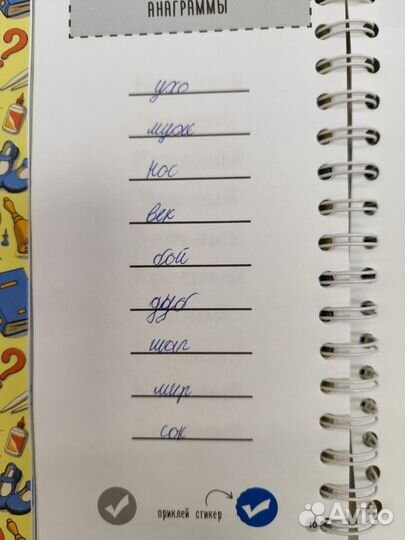 АНАГРАММЫ
ухо
муж
нос
век
бой
дуб
шаг
мир
сок
приклей стикер
Avito